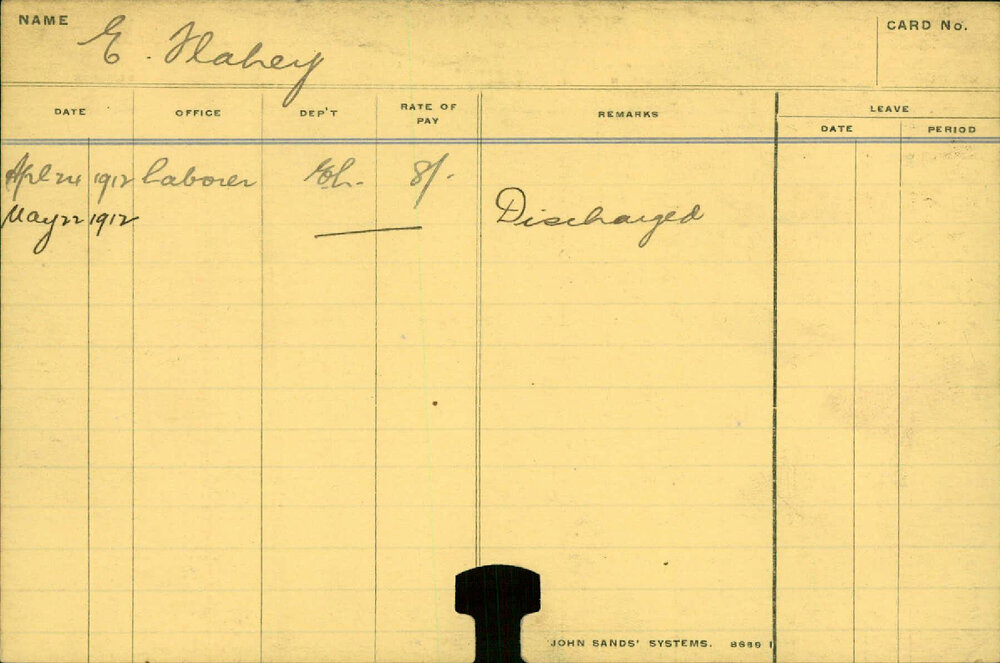 NAME E. Flahey CARD No.
DATE OFFICE DEP'T RATE OF PAY REMARKS LEAVE
DATE PERIOD
Apl 24 1912 Laborer 8/-
May 22 1912 Discharged
JOHN SANDS' SYSTEMS.